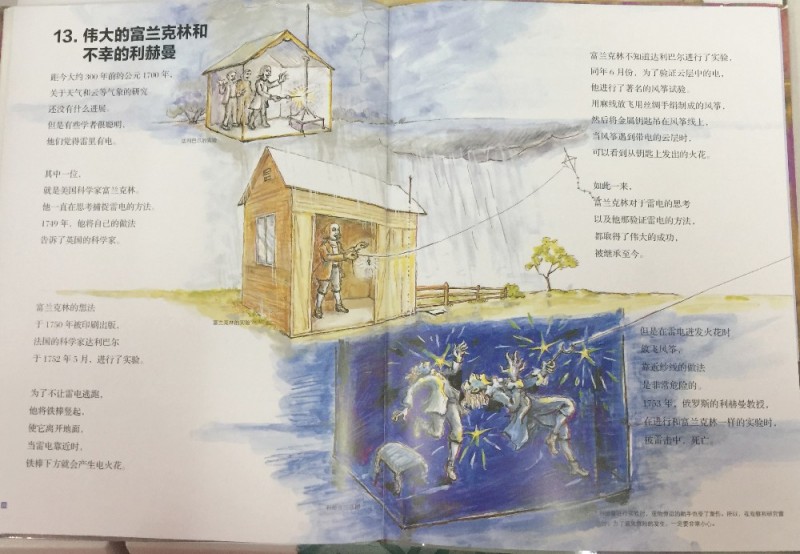 13. 伟大的富兰克林和
不幸的利赫曼
距今大约300年前的公元1700年，
关于天气和云等气象的研究
还没有什么进展。
但是有些学者很聪明，
他们觉得雷里有电。
其中一位，
就是美国科学家富兰克林。
他一直在思考捕捉雷电的方法。
1749年，他将自己的做法
告诉了英国的科学家。
富兰克林的想法
于1750年被印刷出版，
法国的科学家达利巴尔
于1752年5月，进行了实验。
为了不让雷电逃跑，
他将铁棒竖起，
使它离开地面。
当雷电靠近时，
铁棒下方就会产生电火花。
达利巴尔的实验
富兰克林的实验
富兰克林不知道达利巴尔进行了实验，
同年6月份，为了验证云层中的电，
他进行了著名的风筝试验。
用麻线放飞用丝绸手绢制成的风筝，
然后将金属钥匙吊在风筝线上，
当风筝遇到带电的云层时，
可以看到从钥匙上发出的火花。
如此一来，
富兰克林对于雷电的思考
以及他那验证雷电的方法，
都取得了伟大的成功，
被继承至今。
但是在雷电迸发火花时
放飞风筝，
靠近纱线的做法
是非常危险的。
1753年，俄罗斯的利赫曼教授，
在进行和富兰克林一样的实验时，
被雷击中，死亡。